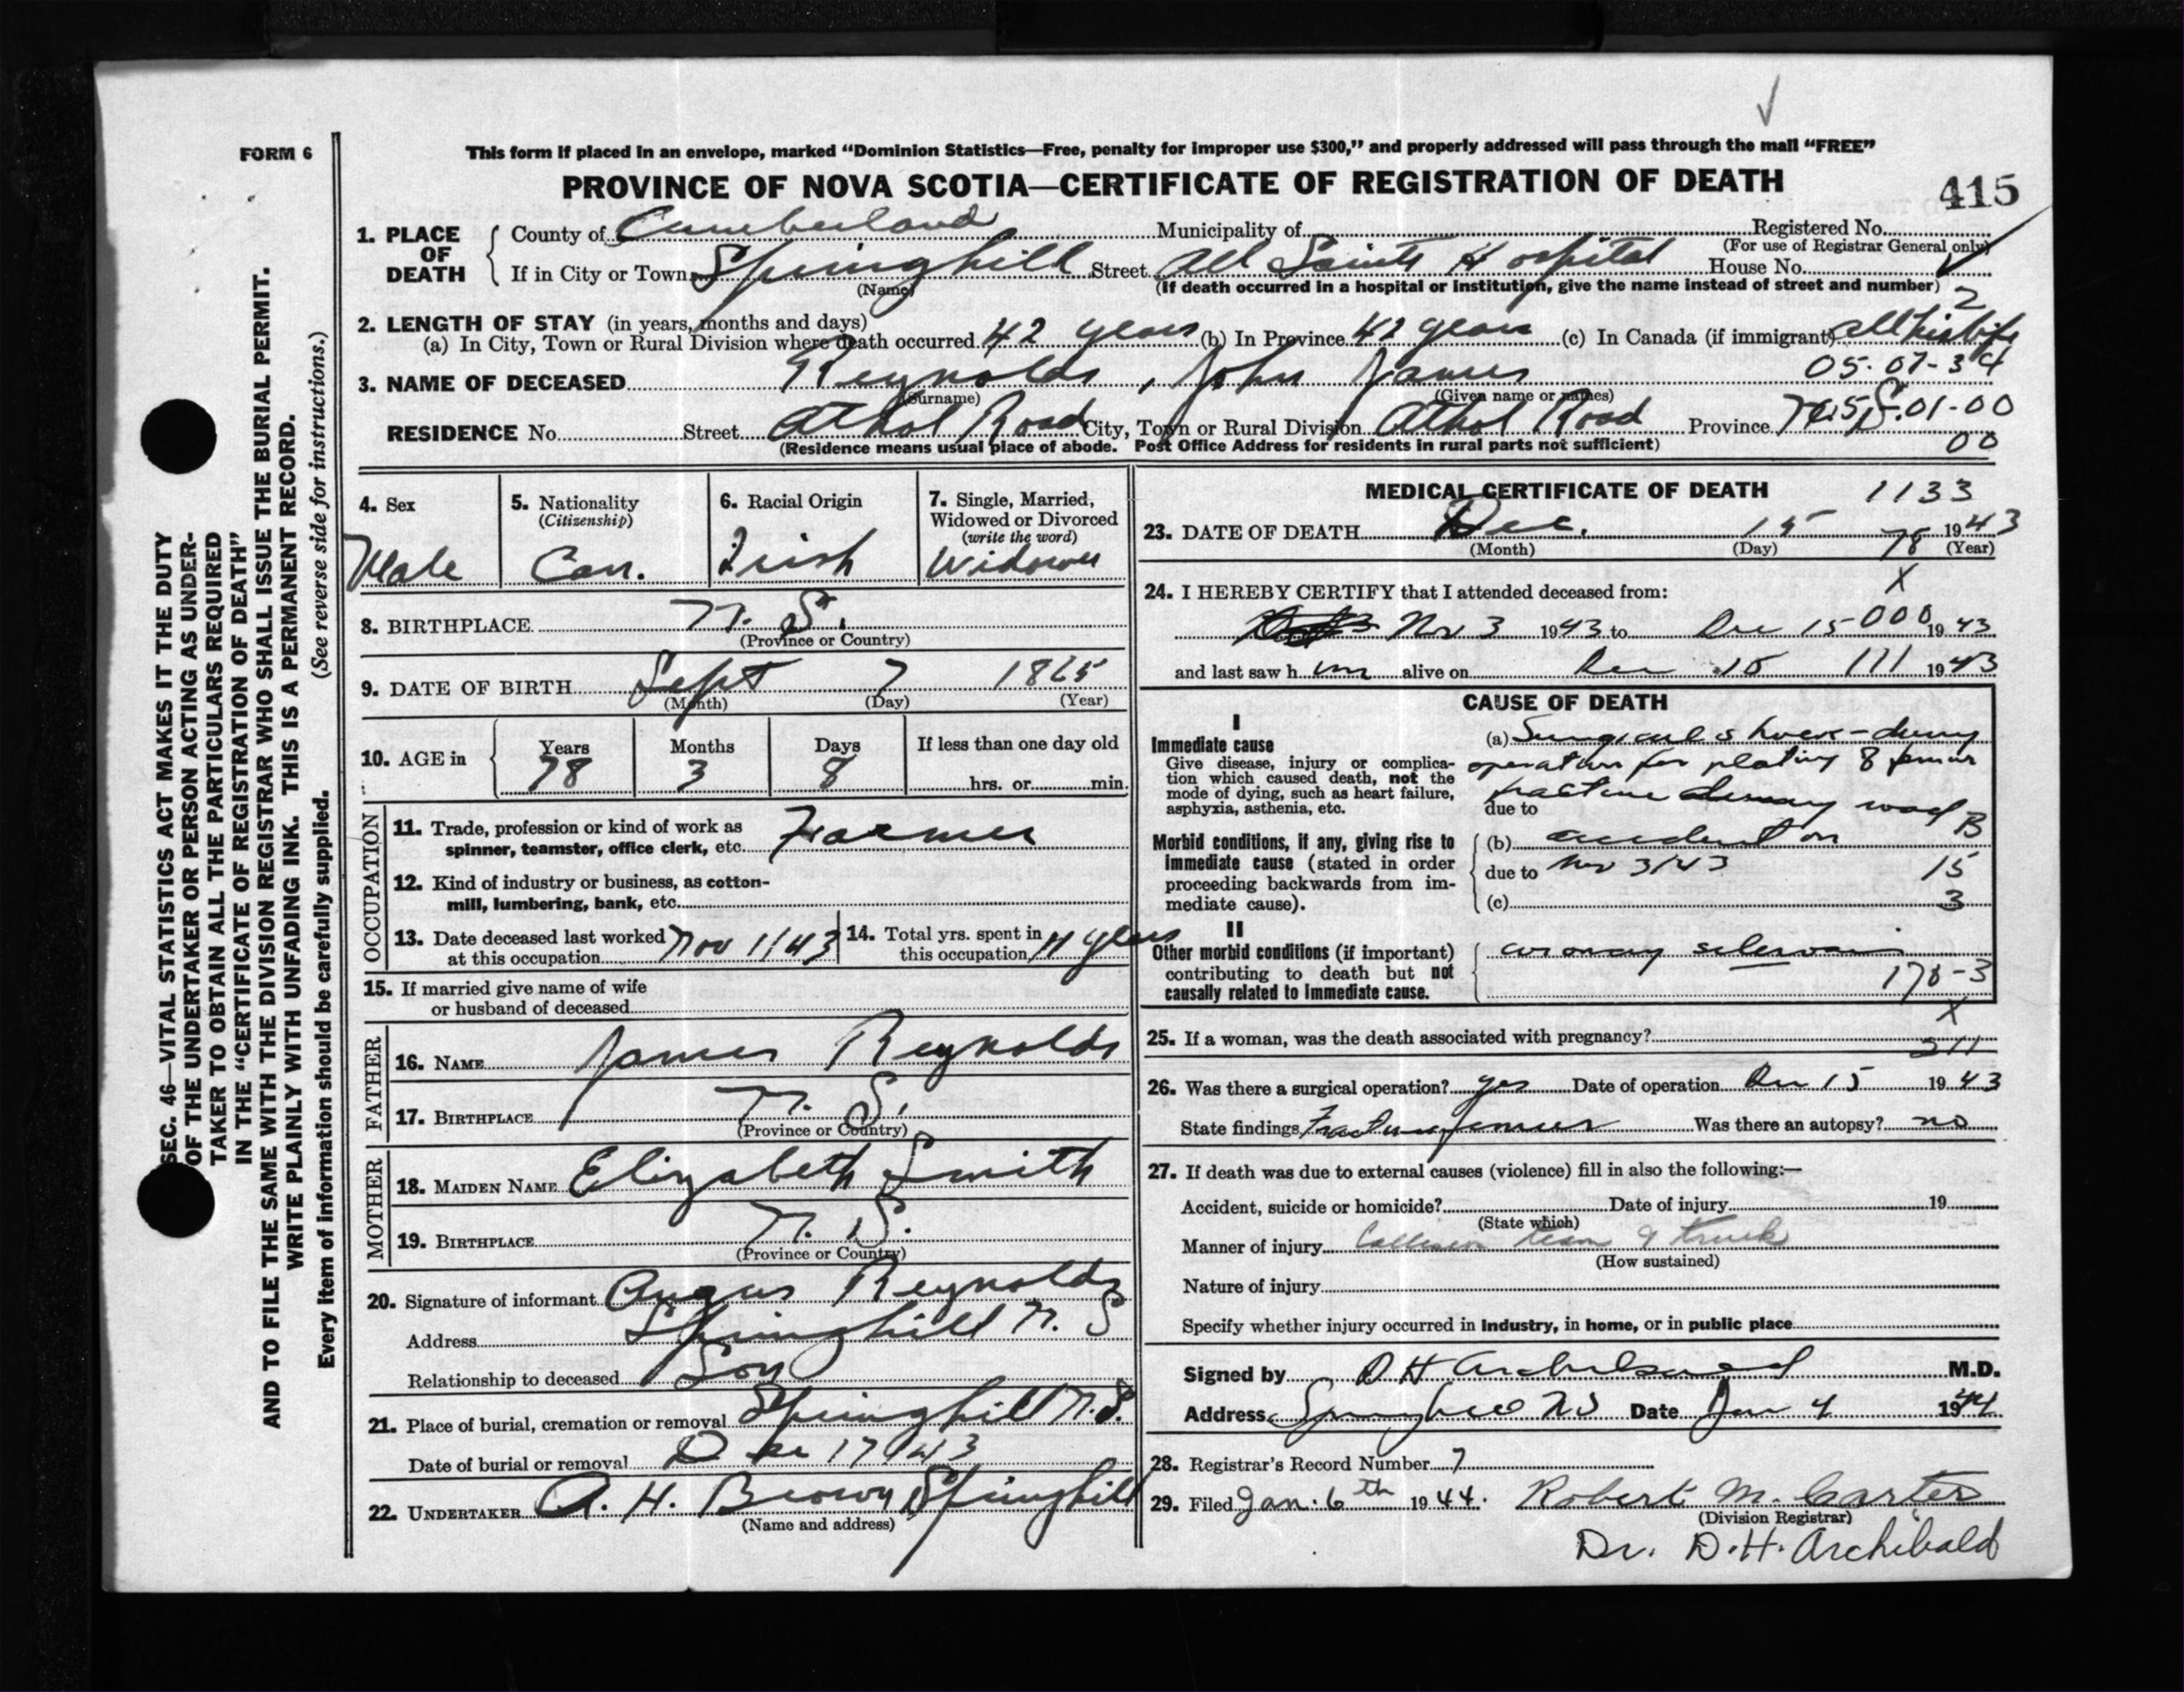 FORM 6
This form if placed in an envelope, marked “Dominion Statistics—Free, penalty for improper use $300,” and properly addressed will pass through the mail “FREE”
PROVINCE OF NOVA SCOTIA—CERTIFICATE OF REGISTRATION OF DEATH
415
1. PLACE OF DEATH
County of Cumberland Municipality of Registered No.
(For use of Registrar General only)
If in City or Town Springhill Street All Saints Hospital House No.
(Name) (If death occurred in a hospital or institution, give the name instead of street and number)
2
2. LENGTH OF STAY (in years, months and days)
(a) In City, Town or Rural Division where death occurred 42 years (b) In Province 42 years (c) In Canada (if immigrant) all his life
05-07-34
3. NAME OF DECEASED Reynolds, John James
(Surname) (Given name or names)
RESIDENCE No. Street Athol Road City, Town or Rural Division Athol Road Province N.S. 01-00
(Residence means usual place of abode. Post Office Address for residents in rural parts not sufficient) 00
4. Sex
Male
5. Nationality
(Citizenship)
Can.
6. Racial Origin
Irish
7. Single, Married,
Widowed or Divorced
(write the word)
Widower
8. BIRTHPLACE N. S.
(Province or Country)
9. DATE OF BIRTH Sept 7 1865
(Month) (Day) (Year)
10. AGE in
Years Months Days If less than one day old
78 3 8 hrs. or min.
OCCUPATION
11. Trade, profession or kind of work as
spinner, teamster, office clerk, etc. Farmer
12. Kind of industry or business, as cotton-
mill, lumbering, bank, etc.
13. Date deceased last worked
at this occupation Nov 1/43
14. Total yrs. spent in
this occupation years
15. If married give name of wife
or husband of deceased
FATHER
16. NAME James Reynolds
17. BIRTHPLACE N. S.
(Province or Country)
MOTHER
18. MAIDEN NAME Elizabeth Smith
19. BIRTHPLACE N. S.
(Province or Country)
20. Signature of informant Angus Reynolds
Address Springhill N. S
Relationship to deceased Son
21. Place of burial, cremation or removal Springhill N.S.
Date of burial or removal Dec 17 1943
22. UNDERTAKER A. H. Brown Springhill
(Name and address)
MEDICAL CERTIFICATE OF DEATH 1133
23. DATE OF DEATH Dec. 15 1943
(Month) (Day) 78 (Year)
X
24. I HEREBY CERTIFY that I attended deceased from:
Nov 3 1943 to Dec 15 000 1943
and last saw him alive on Dec 15 111 1943
CAUSE OF DEATH
I
Immediate cause
Give disease, injury or complica-
tion which caused death, not the
mode of dying, such as heart failure,
asphyxia, asthenia, etc.
(a) Surgical shock - during
operation for plating femur
fracture wood
due to
B
Morbid conditions, if any, giving rise to
immediate cause (stated in order
proceeding backwards from im-
mediate cause).
(b) accident on
due to Nov 3/43 15
(c) 3
II
Other morbid conditions (if important)
contributing to death but not
causally related to immediate cause.
coronary sclerosis
170-3
X
25. If a woman, was the death associated with pregnancy?
211
26. Was there a surgical operation? yes Date of operation Dec 15 1943
State findings Fracture femur Was there an autopsy? no
27. If death was due to external causes (violence) fill in also the following:—
Accident, suicide or homicide? Date of injury 19
(State which)
Manner of injury Collision team & truck
(How sustained)
Nature of injury
Specify whether injury occurred in industry, in home, or in public place
Signed by D H Archibald M.D.
Address Springhill NS Date Jan 4 1944
28. Registrar's Record Number 7
29. Filed Jan. 6th 1944. Robert M. Carter
(Division Registrar)
Dr. D.H. Archibald
SEC. 46—VITAL STATISTICS ACT MAKES IT THE DUTY
OF THE UNDERTAKER OR PERSON ACTING AS UNDER-
TAKER TO OBTAIN ALL THE PARTICULARS REQUIRED
IN THE “CERTIFICATE OF REGISTRATION OF DEATH”
AND TO FILE THE SAME WITH THE DIVISION REGISTRAR WHO SHALL ISSUE THE BURIAL PERMIT.
WRITE PLAINLY WITH UNFADING INK. THIS IS A PERMANENT RECORD.
Every item of information should be carefully supplied. (See reverse side for instructions.)